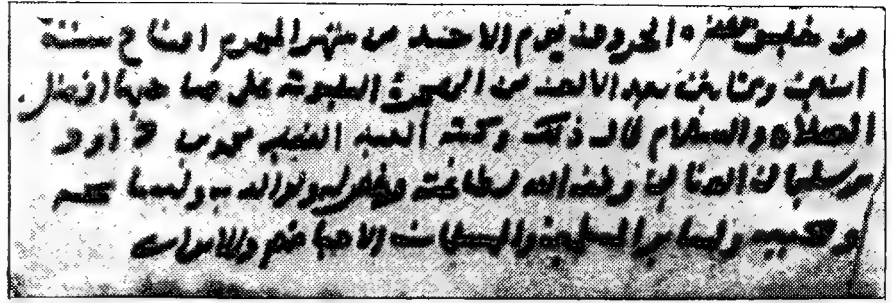 من تعليق هذه الحروف يوم الاحد من شهر المحرم افتتاح سنة
اثنين وثمانين بعد الالف من الهجرة النبوية على صاحبها افضل
الصلاة والسلام قال ذلك وكتبه العبد الفقير محمد بن داود
بن سليمان العناني وفقه الله لطاعته وغفر له ولوالديه ولمشايخه
ومحبيه ولسائر المسلمين والمسلمات الاحياء منهم والاموات